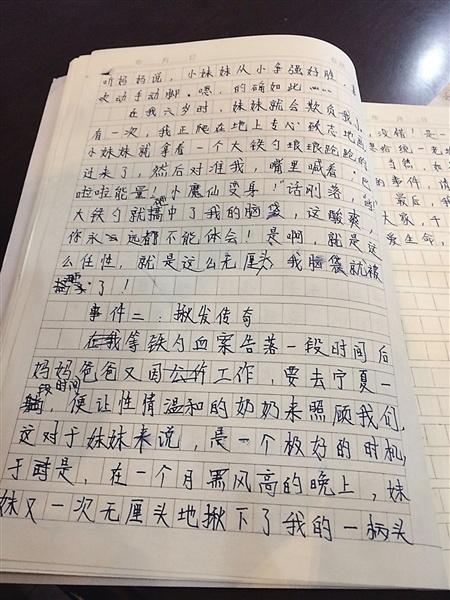 听妈妈说，小妹妹从小争强好胜，喜
欢动手动脚。嗯，的确如此……
在我六岁时，妹妹就会欺负我
有一次，我正趴在地上专心致志地画
小妹妹就拿着一个大铁勺踉踉跄跄的
过来了，然后对准我，嘴里喊着：巴
啦啦能量！小魔仙变身！话刚落，
大铁勺就击中了我的脑袋，这酸爽，
你永远都不能体会！是啊，就是这
么任性，就是这么无厘头，我脑袋就被
了！
事件二：揪发传奇
在我等铁勺血案告落一段时间后
妈妈爸爸又因公的工作，要去宁夏一
段时间，便让性情温和的奶奶来照顾我们，
这对于妹妹来说，是一个极好的时机，
于是，在一个月黑风高的晚上，妹
妹又一次无厘头地揪下了我的一柄头
没错！是一
当然，如
的事件，请
最后，我
大家，千
爱生命，